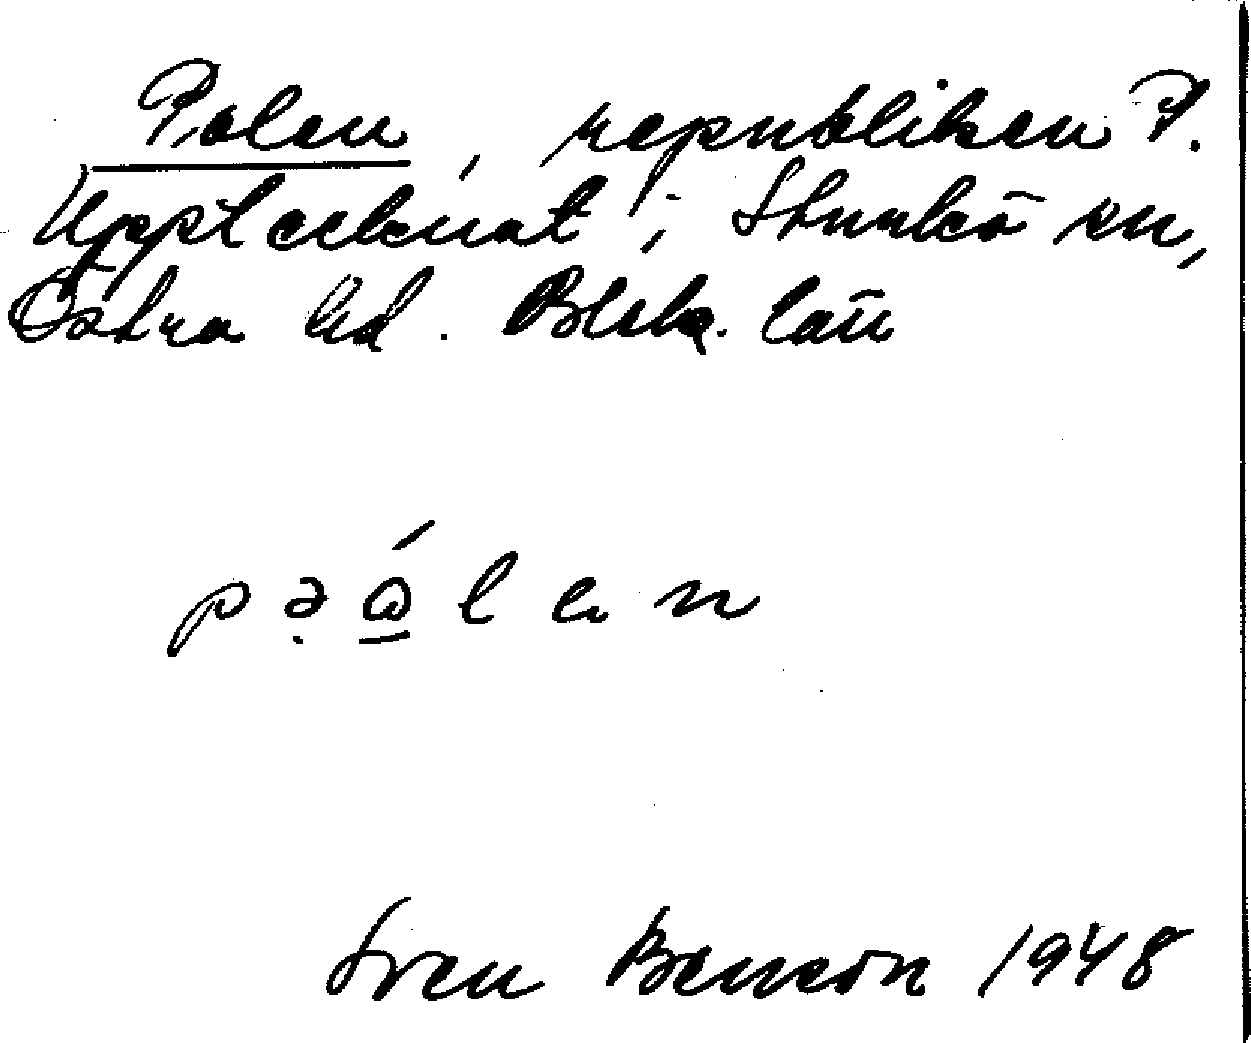 Polen, republiken P.
Upptecknat i Sturkö sn,
Östra hd. Blek. län
pə̣ɷ̲́len
Sven Benson 1948